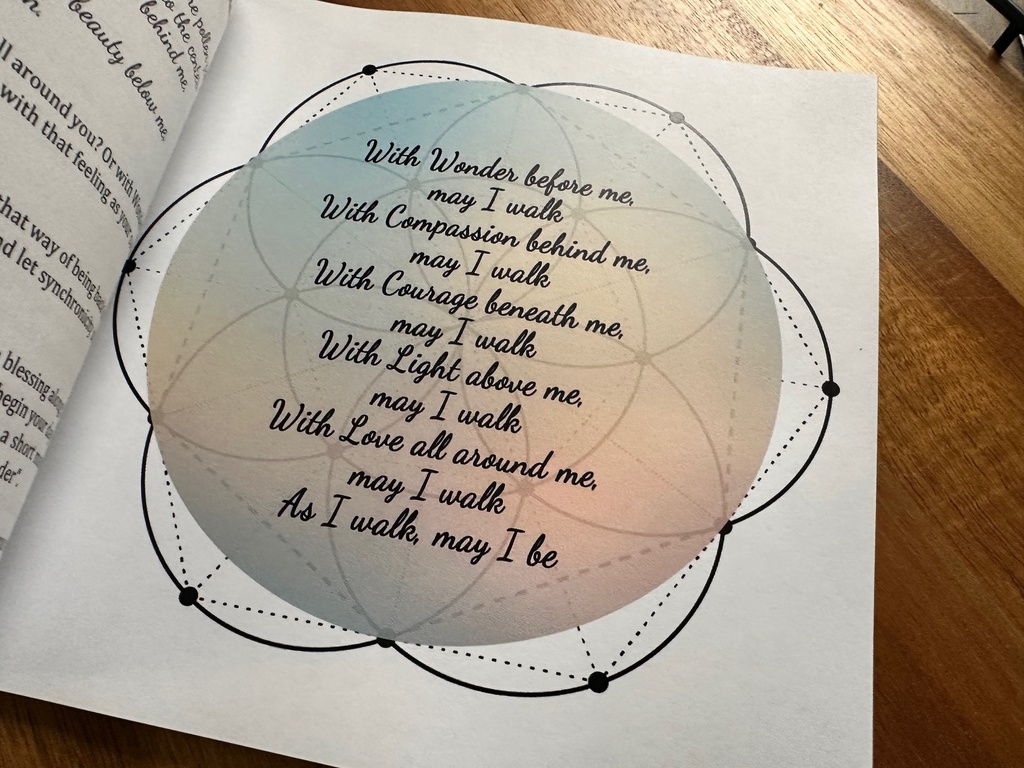 beauty below me,
behind me,
to the center
all around you? Or with
with that feeling as your
that way of being
and let synchronicity
blessing
begin your
a short
With Wonder before me,
may I walk
With Compassion behind me,
may I walk
With Courage beneath me,
may I walk
With Light above me,
may I walk
With Love all around me,
may I walk
As I walk, may I be